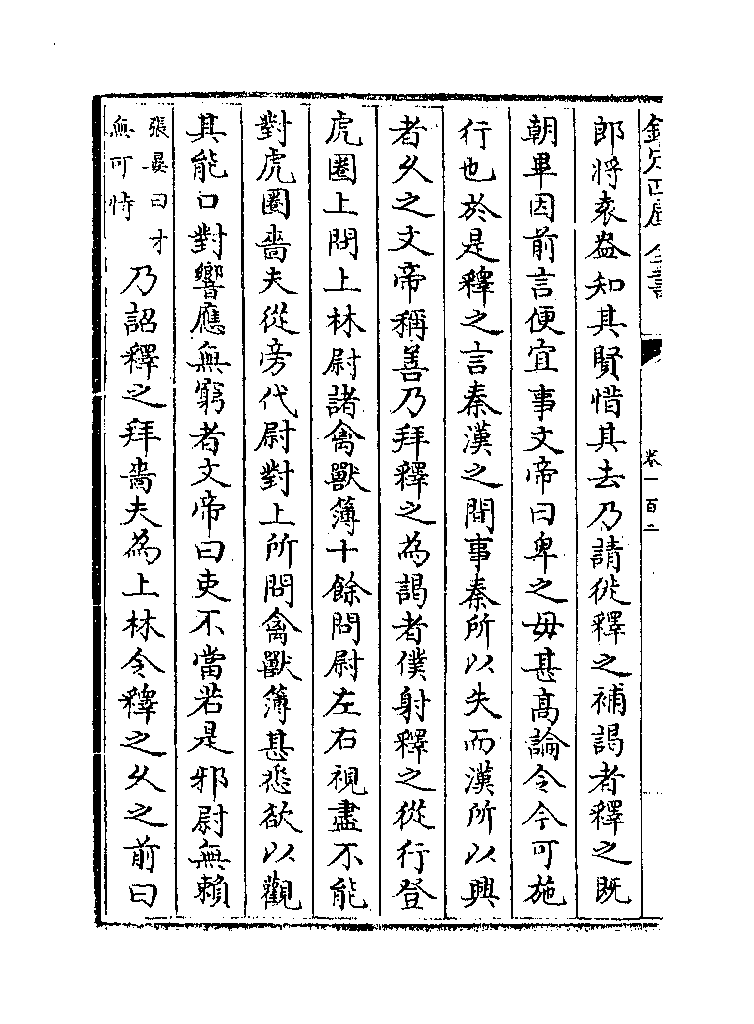 欽定四庫全書
卷一百二
郎將袁盎知其賢惜其去乃請徙釋之補謁者釋之既
朝畢因前言便宜事文帝曰卑之毋甚高論令今可施
行也於是釋之言秦漢之間事秦所以失而漢所以興
者乆之文帝稱善乃拜釋之為謁者僕射釋之從行登
虎圈上問上林尉諸禽獸簿十餘問尉左右視盡不能
對虎圈嗇夫從旁代尉對上所問禽獸簿甚悉欲以觀
其能口對響應無窮者文帝曰吏不當若是邪尉無賴
張晏曰才
無可恃
乃詔釋之拜嗇夫為上林令釋之乆之前曰